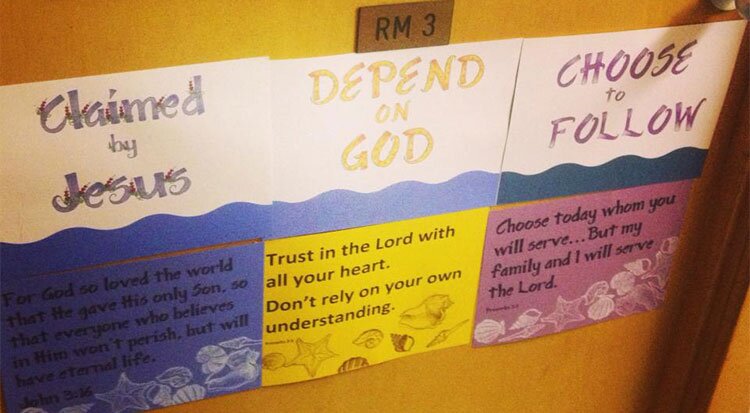 RM 3
Claimed
by
Jesus
For God so loved the world
that He gave His only Son, so
that everyone who believes
in Him won't perish, but will
have eternal life.
John 3:16
DEPEND
ON
GOD
Trust in the Lord with
all your heart.
Don't rely on your own
understanding.
Proverbs 3:5
CHOOSE
to
FOLLOW
Choose today whom you
will serve...But my
family and I will serve
the Lord.